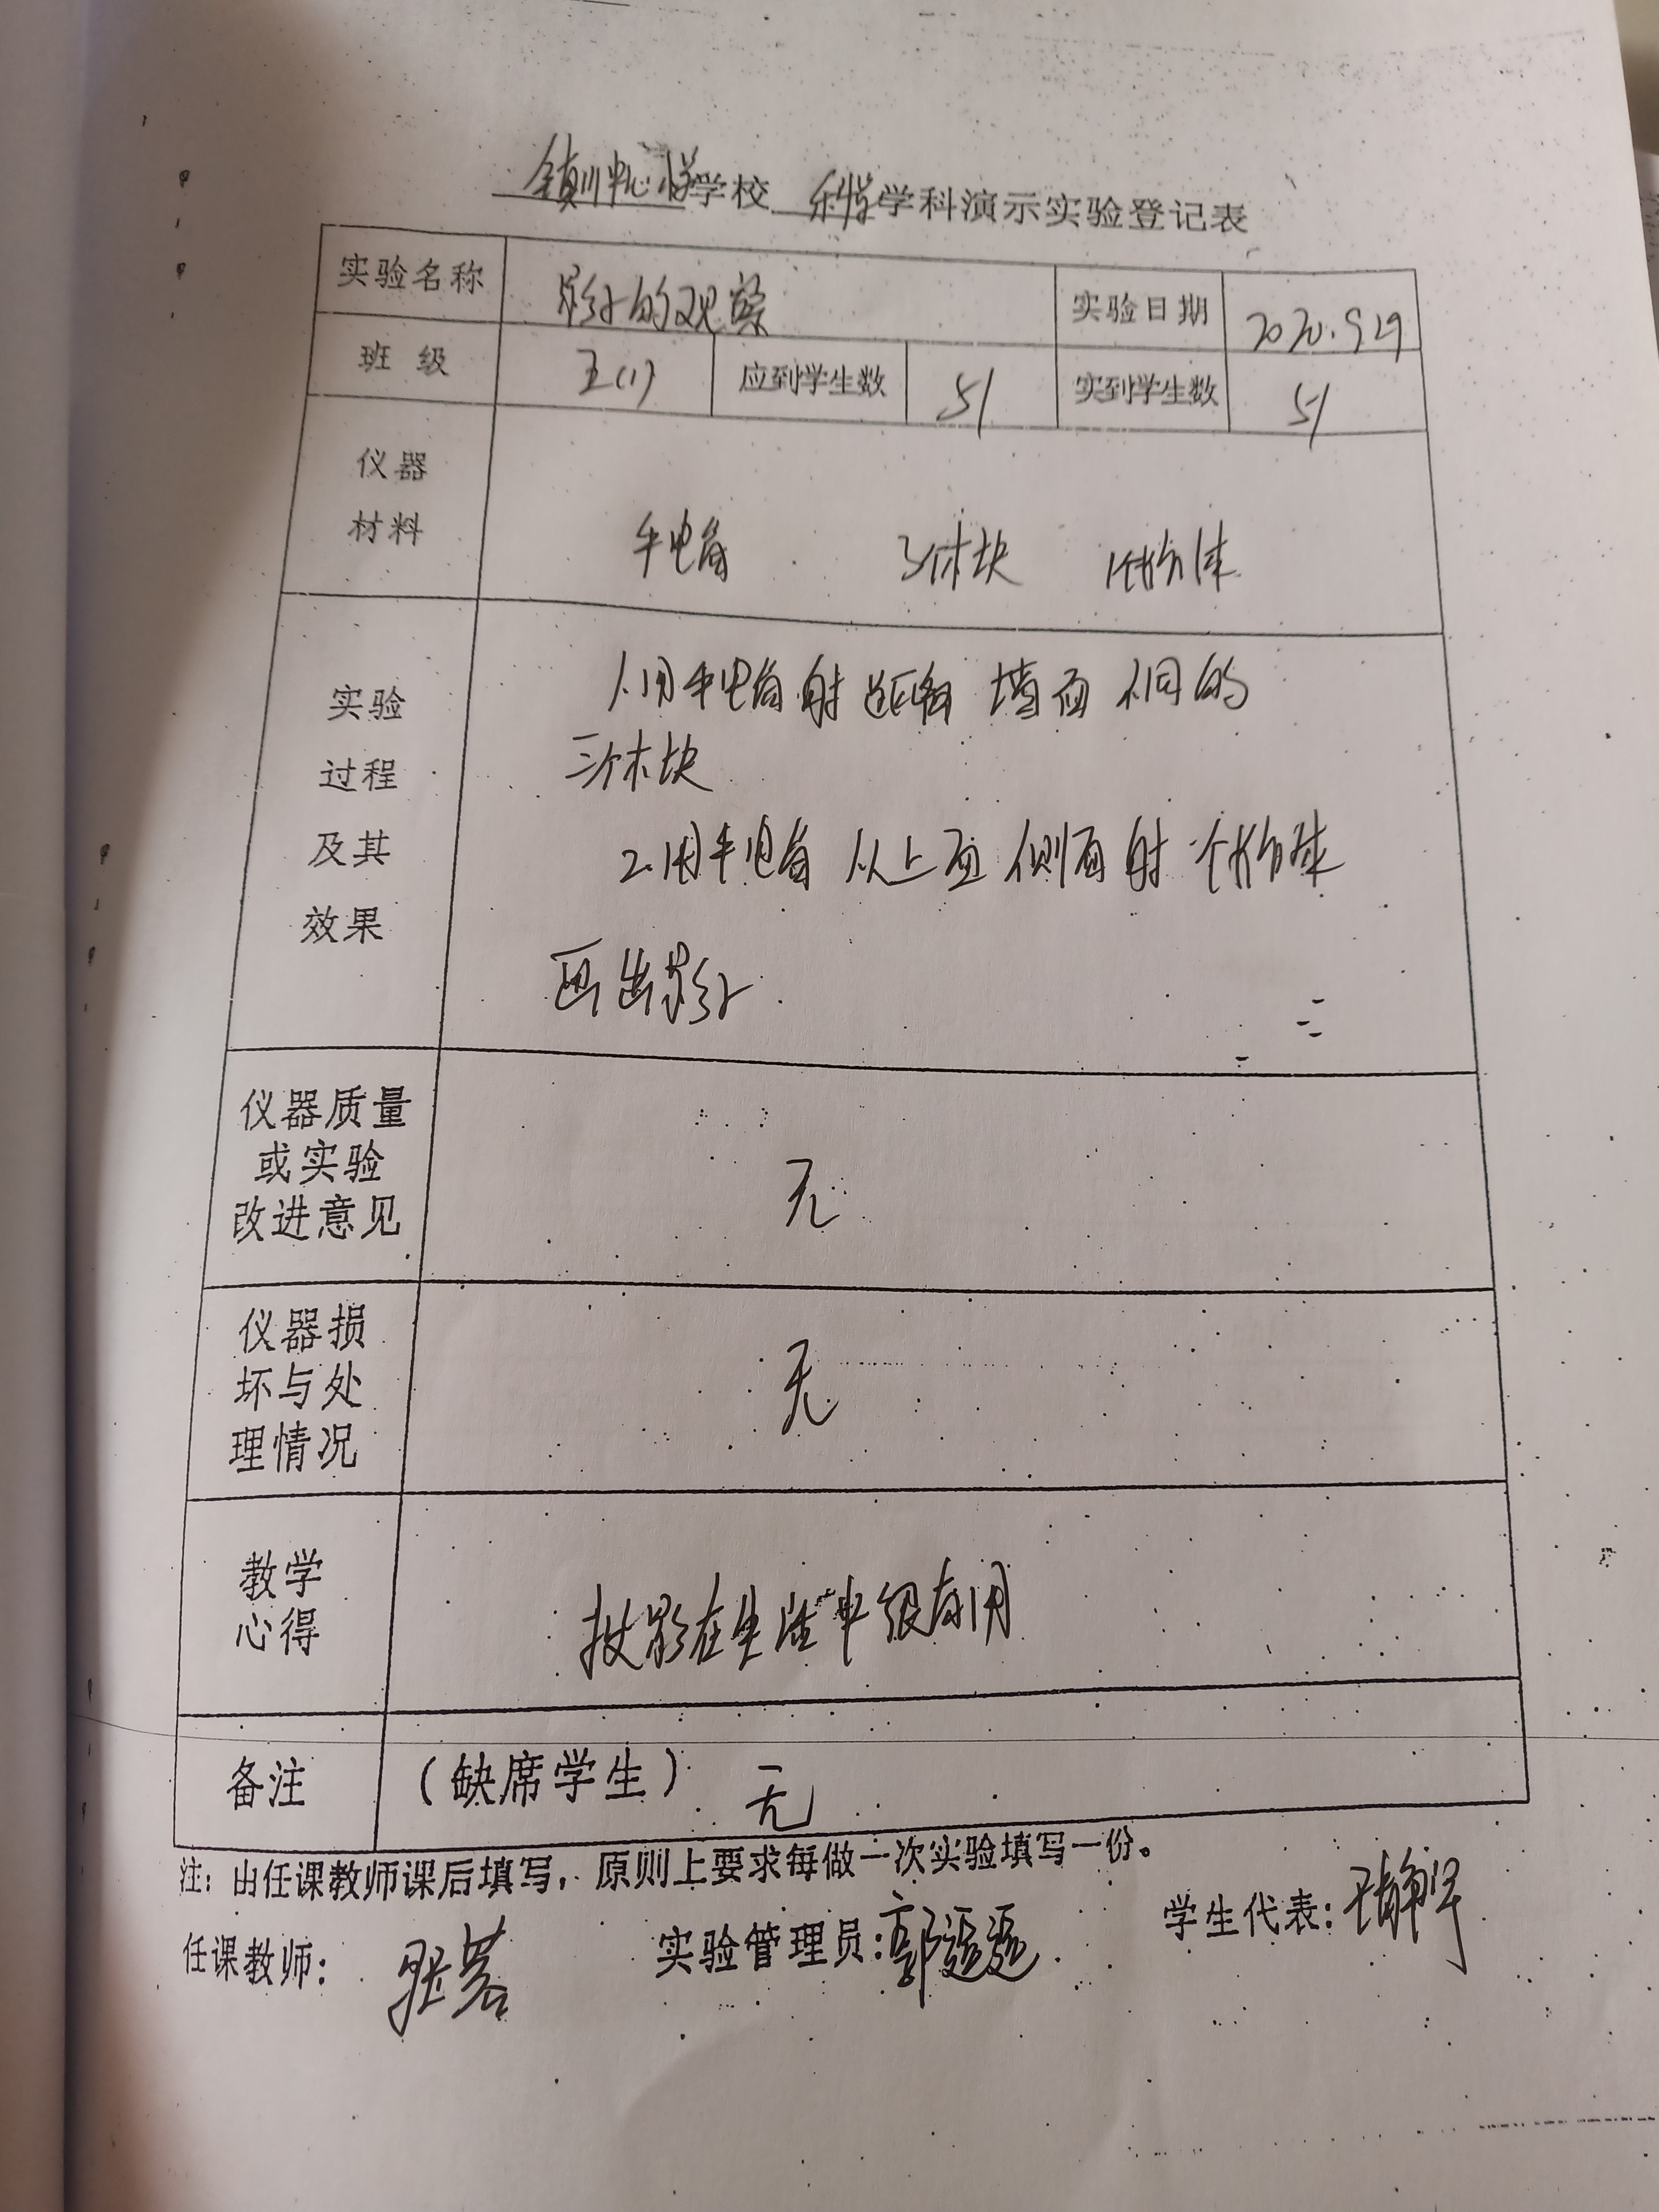 镇川中心小学学校 科学学科演示实验登记表
实验名称 影子的观察 实验日期 2020.9.29
班 级 五(1) 应到学生数 51 实到学生数 51
仪器
材料
手电筒 3个木块 1个物体
实验
过程
及其
效果
1.用手电筒射距离墙面不同的
三个木块
2.用手电筒从上面侧面射一个物体
画出影子.
仪器质量
或实验
改进意见
无
仪器损
坏与处
理情况
无
教学
心得
投影在生活中很有用
备注 (缺席学生) 无
注:由任课教师课后填写,原则上要求每做一次实验填写一份。
任课教师: 实验管理员: 学生代表: